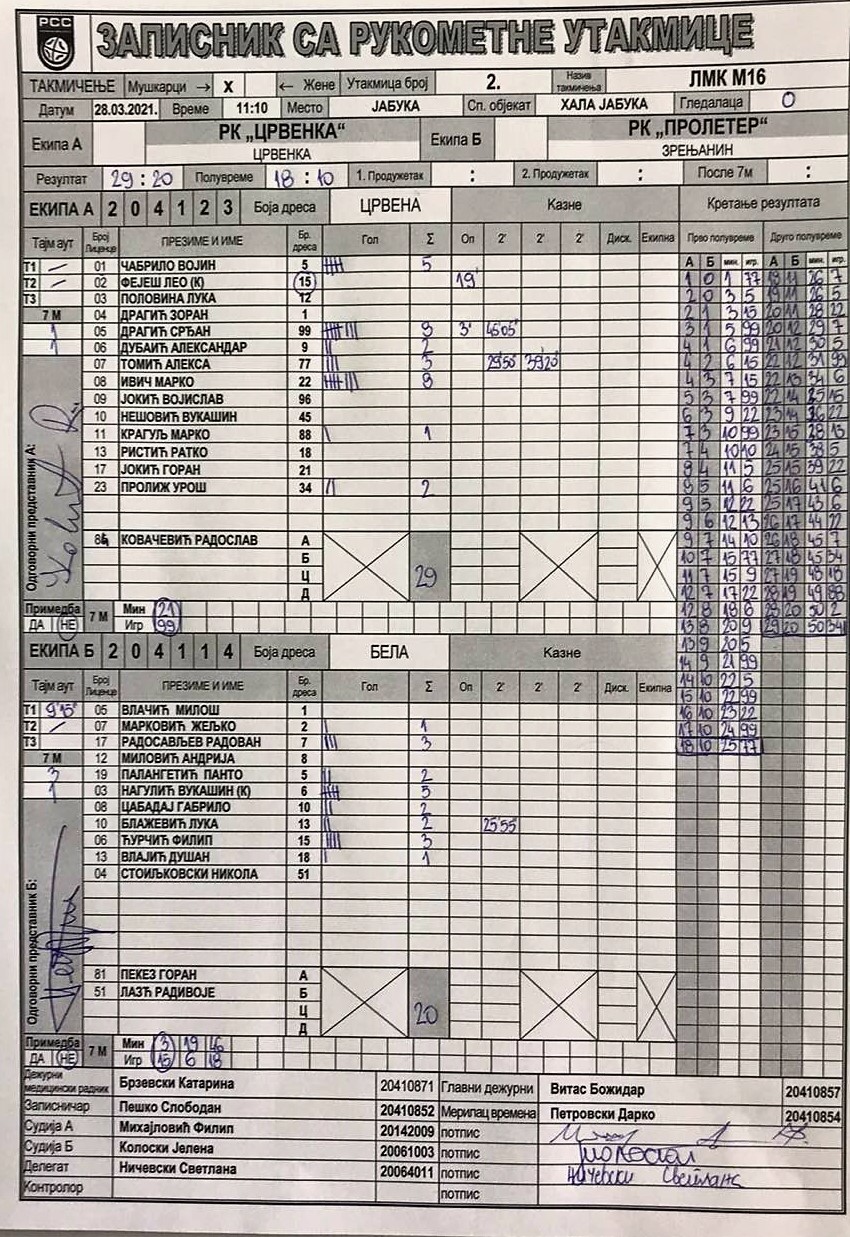 РСС
ЗАПИСНИК СА РУКОМЕТНЕ УТАКМИЦЕ
ТАКМИЧЕЊЕ Мушкарци → X ← Жене Утакмица број 2. Назив такмичења ЛМК М16
Датум 28.03.2021. Време 11:10 Место ЈАБУКА Сп. објекат ХАЛА ЈАБУКА Гледалаца 0
Екипа А РК „ЦРВЕНКА“ ЦРВЕНКА Екипа Б РК „ПРОЛЕТЕР“ ЗРЕЊАНИН
Резултат 29 : 20 Полувреме 18 : 10 1. Продужетак : 2. Продужетак : После 7м :
ЕКИПА А 2 0 4 1 2 3 Боја дреса ЦРВЕНА Казне Кретање резултата
Тајм аут Број Лиценце ПРЕЗИМЕ И ИМЕ Бр. дреса Гол Σ Оп 2' 2' 2' Диск. Екипна Прво полувреме Друго полувреме
А Б мин. игр. А Б мин. игр.
Т1 – 01 ЧАБРИЛО ВОЈИН 5 5
Т2 – 02 ФЕЈЕШ ЛЕО (К) 15 19'
Т3 03 ПОЛОВИНА ЛУКА 12
7 М 04 ДРАГИЋ ЗОРАН 1
1 05 ДРАГИЋ СРЂАН 99 3' 45'05"
1 06 ДУБАИЋ АЛЕКСАНДАР 9 2
07 ТОМИЋ АЛЕКСА 77 3 29'50" 39'20"
08 ИВИЧ МАРКО 22 8
09 ЈОКИЋ ВОЈИСЛАВ 96
10 НЕШОВИЋ ВУКАШИН 45
11 КРАГУЉ МАРКО 88 1
13 РИСТИЋ РАТКО 18
17 ЈОКИЋ ГОРАН 21
23 ПРОЛИЖ УРОШ 34 2
КОВАЧЕВИЋ РАДОСЛАВ А
Б
Ц 29
Д
Одговорни представник А:
1 0 1 77
2 0 3 5 19 11 26 5
2 1 3 15 20 11 28 22
3 1 5 99 20 12 29 7
4 1 6 99 21 12 30 5
4 2 6 15 22 12 31 99
4 3 7 15 22 13 34 6
5 3 7 99 22 14 35 15
6 3 9 22 23 14 36 22
7 3 10 99 23 15 38 13
7 4 10 10 24 15 38 5
8 4 11 5 25 15 39 22
25 16 41 6
9 5 12 22 25 17 43 6
9 6 12 13 26 17 44 22
9 7 14 10 26 18 45 7
10 7 15 77 27 18 45 34
11 7 15 9 27 19 48 18
12 7 17 22 28 19 49 88
12 8 18 6 28 20 50 2
13 8 20 9 29 20 50 34
13 9 20 5
14 9 21 99
14 10 22 5
15 10 22 99
16 10 23 22
17 10 24 99
18 10 25 77
Примедба ДА НЕ 7 М Мин 21
Игр 99
ЕКИПА Б 2 0 4 1 1 4 Боја дреса БЕЛА Казне
Тајм аут Број Лиценце ПРЕЗИМЕ И ИМЕ Бр. дреса Гол Σ Оп 2' 2' 2' Диск. Екипна
Т1 9'15" 05 ВЛАЧИЋ МИЛОШ 1
Т2 – 07 МАРКОВИЋ ЖЕЉКО 2 1
Т3 17 РАДОСАВЉЕВ РАДОВАН 7 3
7 М 12 МИЛОВИЋ АНДРИЈА 8
3 19 ПАЛАНГЕТИЋ ПАНТО 5 2
1 03 НАГУЛИЋ ВУКАШИН (К) 6 5
08 ЦАБАДАЈ ГАБРИЛО 10 2
10 БЛАЖЕВИЋ ЛУКА 13 2 25'55"
06 ЋУРЧИЋ ФИЛИП 15 3
13 ВЛАЈИЋ ДУШАН 18 1
04 СТОИЉКОВСКИ НИКОЛА 51
81 ПЕКЕЗ ГОРАН А
51 ЛАЗЋ РАДИВОЈЕ Б
Ц 20
Д
Одговорни представник Б:
Примедба ДА НЕ 7 М Мин 3 19 46
Игр 15 6 18
Дежурни медицински радник Брзевски Катарина 20410871 Главни дежурни Витас Божидар 20410857
Записничар Пешко Слободан 20410852 Мерилац времена Петровски Дарко 20410854
Судија А Михајловић Филип 20142009 потпис
Судија Б Колоски Јелена 20061003 потпис
Делегат Ничевски Светлана 20064011 потпис Ничевски Светлана
Контролор потпис